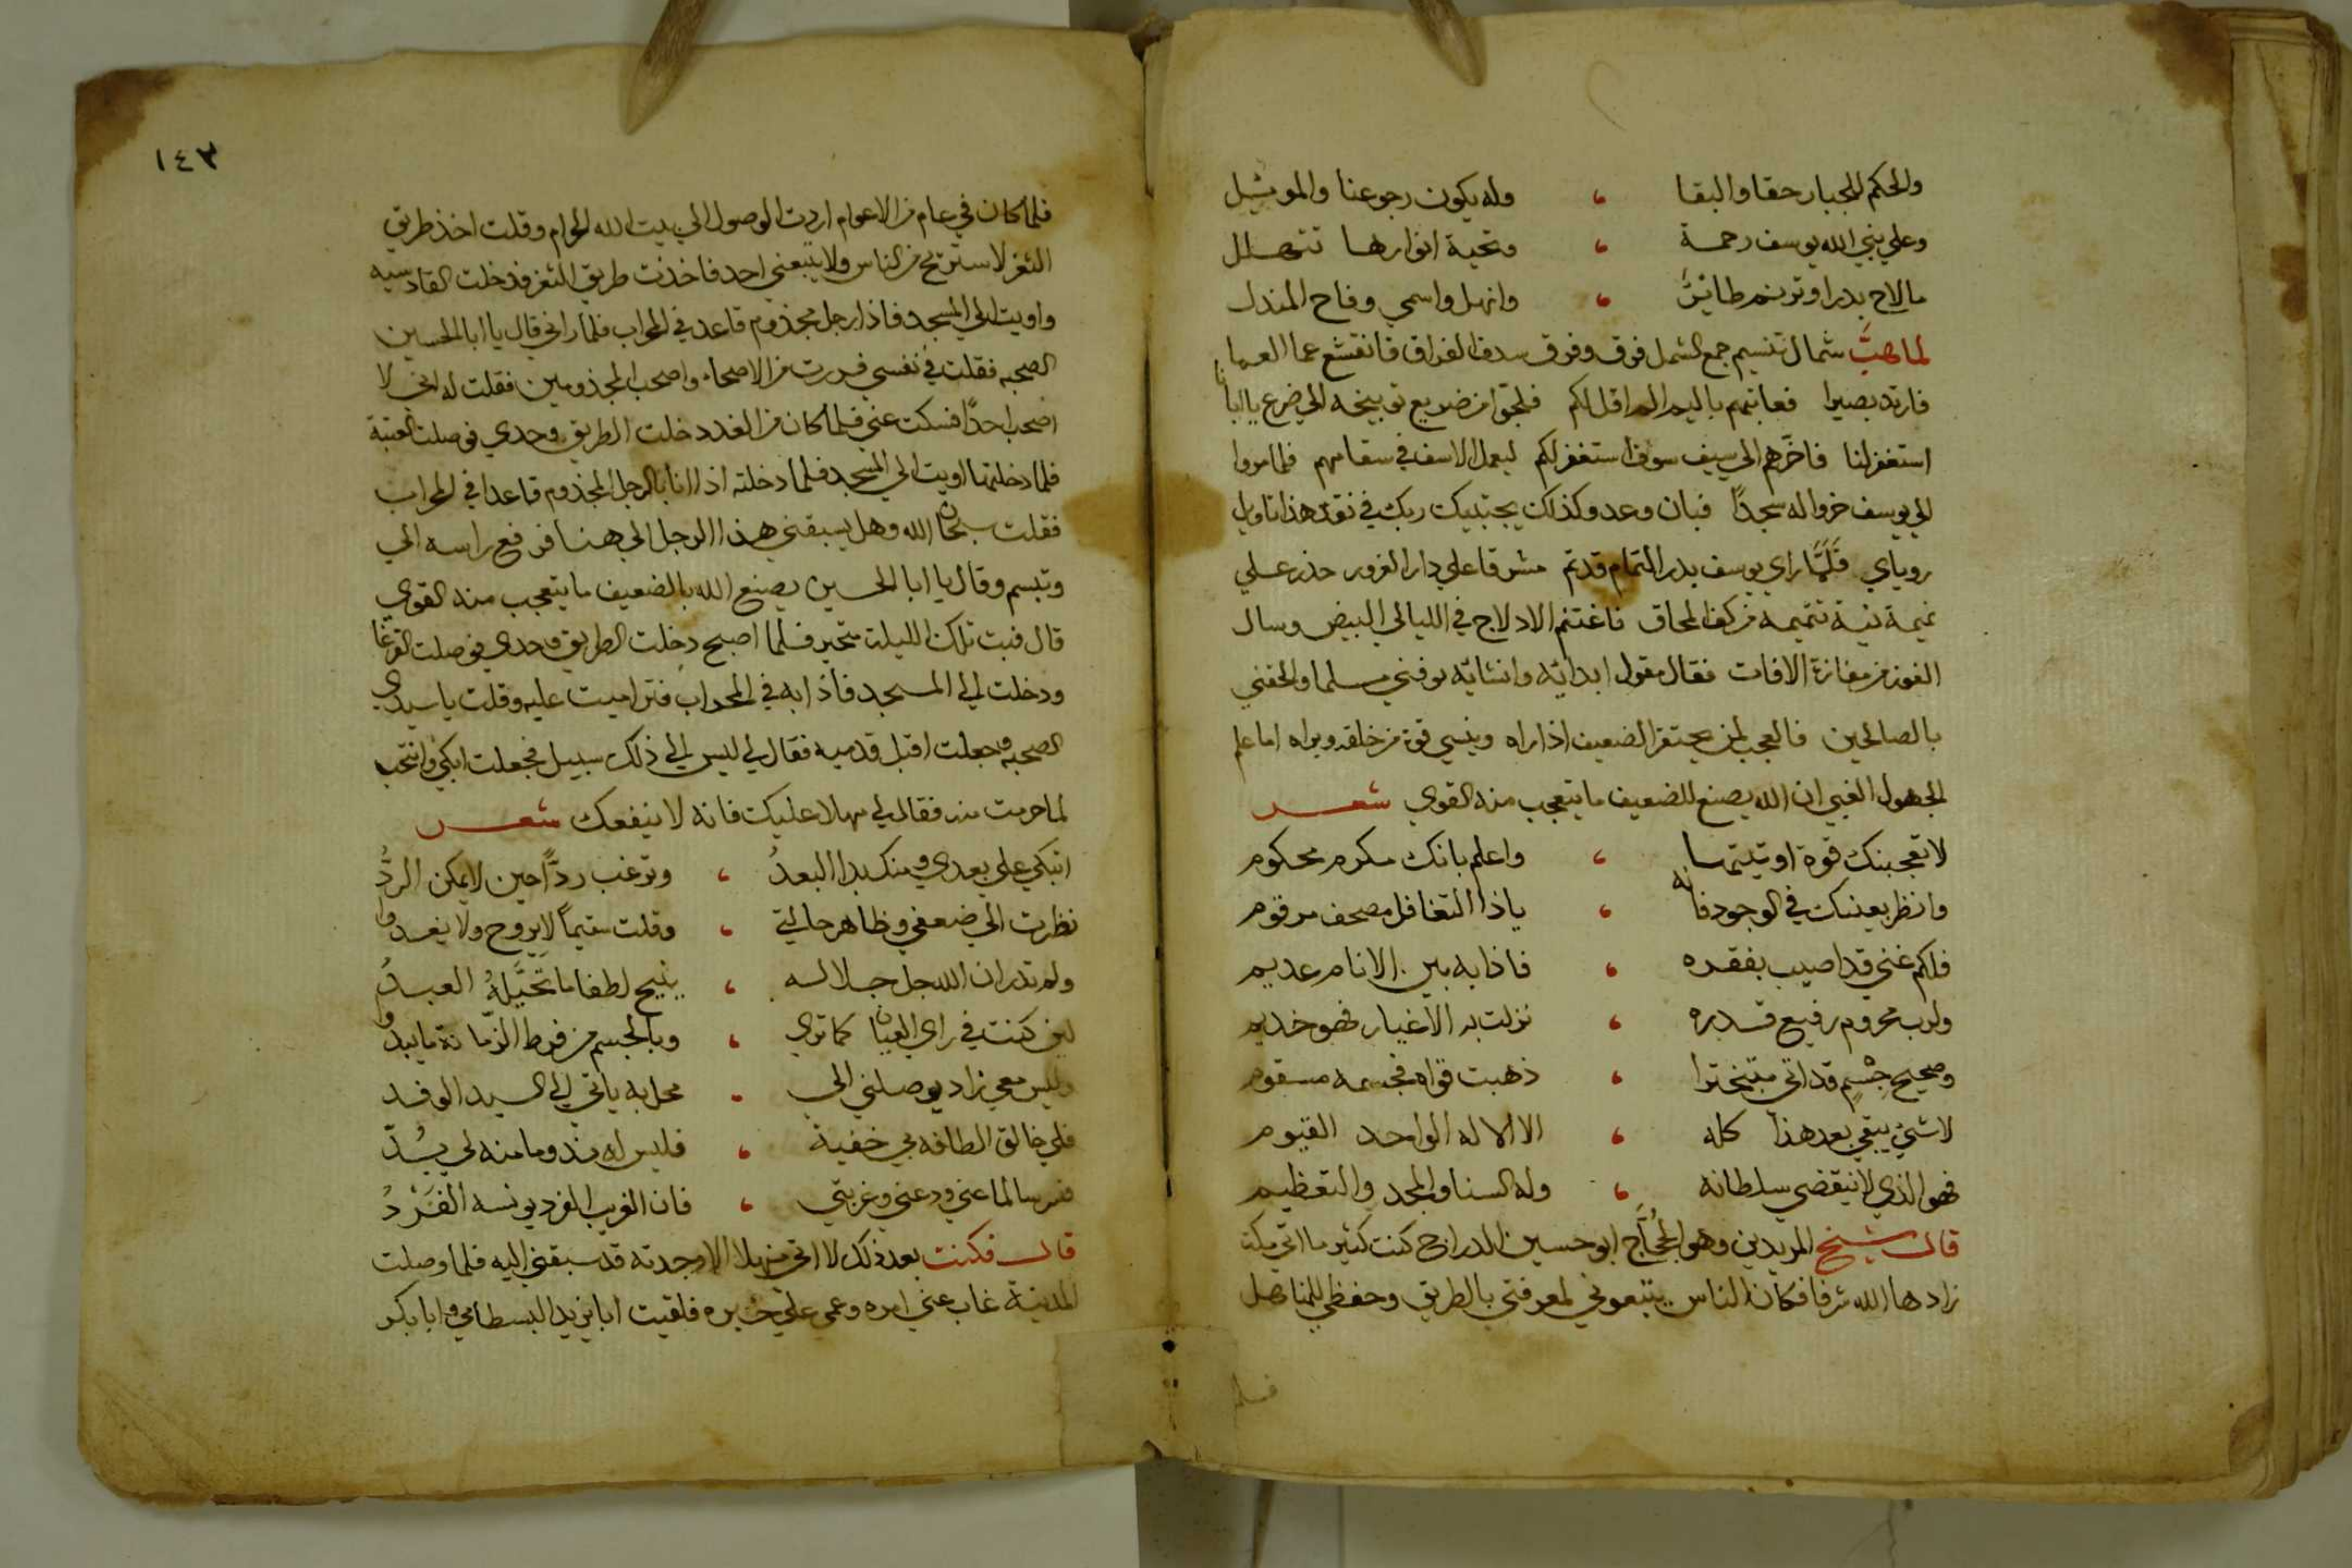 والحكم للجبار حقا والبقا ، وله يكون رجوعنا والموئيل
وعلي نبي الله يوسف رحمة ، وتحية انوارها تتهلل
مالاح بدر او ترنم طائر ، وانهل واسمي وفاح المندل
لما هبت شمال تنسيم جمع الشمل فوق وفرق سدف الفراق فانقشع عما العما
فارتد بصيرا فعاتبهم باليم الم اقل لكم فلجوا من ضريع توبيخه الي ضرع يا ابانا
استغفر لنا فاخرهم الي سيف سوف استغفر لكم ليعمل الاسف في سقامهم فلما مروا
الي يوسف خروا له سجدًا فبان وعد وكذلك يجتبيك ربك في نقد هذا تاويل
روياي فلما راي يوسف بدر التمام قد تم مشرقا علي دار الغرور حذر علي
تميمة تتميمه من كف المحاق فاغتنم الادلاج في الليالي البيض وسال
الفوز من مفازة الافات فقال مقول ابدائه وانشائه توفني مسلما والحقني
بالصالحين فالعجب لمن يحتقر الضعيف اذا راه وينسي قوة من خلقه ويراه اما علم
الجهول الغبي ان الله يصنع للضعيف ما يتعجب منه القوي شعر
لا تعجبنك قوة اوتيتها ، واعلم بانك مكرم محكوم
وانظر بعينك في الوجود فانه ، ياذا التغافل مصحف مرقوم
فلكم غني قد اصيب بفقده ، فاذا به بين الانام عديم
ولرب محروم رفيع قدره ، نزلت به الاغيار فهو خديم
وصحيح جسم قد اتي متبخترا ، ذهبت قواه فجسمه مسقوم
لا شيء يبقي بعد هذا كله ، الا الاله الواحد القيوم
فهو الذي لا ينقضي سلطانه ، وله السنا والمجد والتعظيم
قال شيخ المريدين وهو الحجاج ابو حسين الدراج كنت كثير ما اتي مكة
زادها الله شرفا فكان الناس يتبعوني لمعرفتي بالطريق وحفظي للمناهل
فلما
١٤٣
فلما كان في عام من الاعوام اردت الوصول الي بيت الله الحرام وقلت اخذ طريق
الثغر لاستريح من الناس ولا يتبعني احد فاخذت طريق الثغر فدخلت القادسيه
واويت الي المسجد فاذا رجل مجذوم قاعد في المحراب فلما راني قال يا ابا الحسين
الصحبه فقلت في نفسي فررت من الاصحاء واصحب المجذومين فقلت له اني لا
اصحب احدًا فسكت عني فلما كان من الغد دخلت الطريق وحدي فوصلت العتبة
فلما دخلتها اويت الي المسجد فلما دخلته اذا انا بالرجل المجذوم قاعدا في المحراب
فقلت سبحان الله وهل يسبقني هذا الرجل الي هنا فرفع راسه الي
وتبسم وقال يا ابا الحسين يصنع الله بالضعيف ما يتعجب منه القوي
قال فبت تلك الليلة متحير فلما اصبح دخلت الطريق وحدي فوصلت القرعا
ودخلت الي المسجد فاذا به في المحراب فتراميت عليه وقلت يا سيدي
الصحبه وجعلت اقبل قدميه فقال لي ليس الي ذلك سبيل فجعلت ابكي وانتحب
لما حرمت منه فقال لي مهلا عليك فانه لا ينفعك شعر
اتبكي علي بعدي ومنك بدا البعدُ ، وترغب ردًّا حين لا يمكن الردُّ
نظرت الي ضعفي وظاهر حالتي ، وقلت سقيمًا لا يروح ولا يغدوا
ولم تدر ان الله جل جلاله ، يتيح لطفا ما تخيله العبدُ
لين كنت في راي العيان كما تري ، وبالجسم من فرط الزمانة ما يبدوا
وليس معي زاد يوصلني الي ، محل به ياتي الي السيد الوفد
فلي خالق الطافه بي خفية ، فليس له ند وما منه لي بُدّ
فسر سالما عني ودعني وغربتي ، فان الغريب الفرد يونسه الفَرْدُ
قال فكنت بعد ذلك لا اتي منهلا الا وجدته قد سبقني اليه فلما وصلت
المدينة غاب عني امره وعمي علي خبره فلقيت ابا يزيد البسطامي وابا بكر